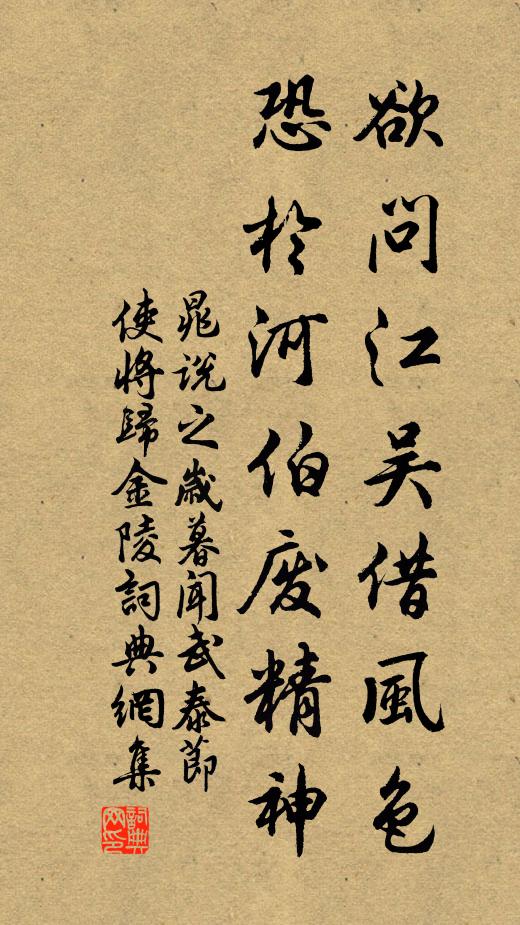 欲問江吴借風色
恐於河伯废精神
晁说之歲暮闻武泰節
使將歸金陵詞典網集
詞典网印